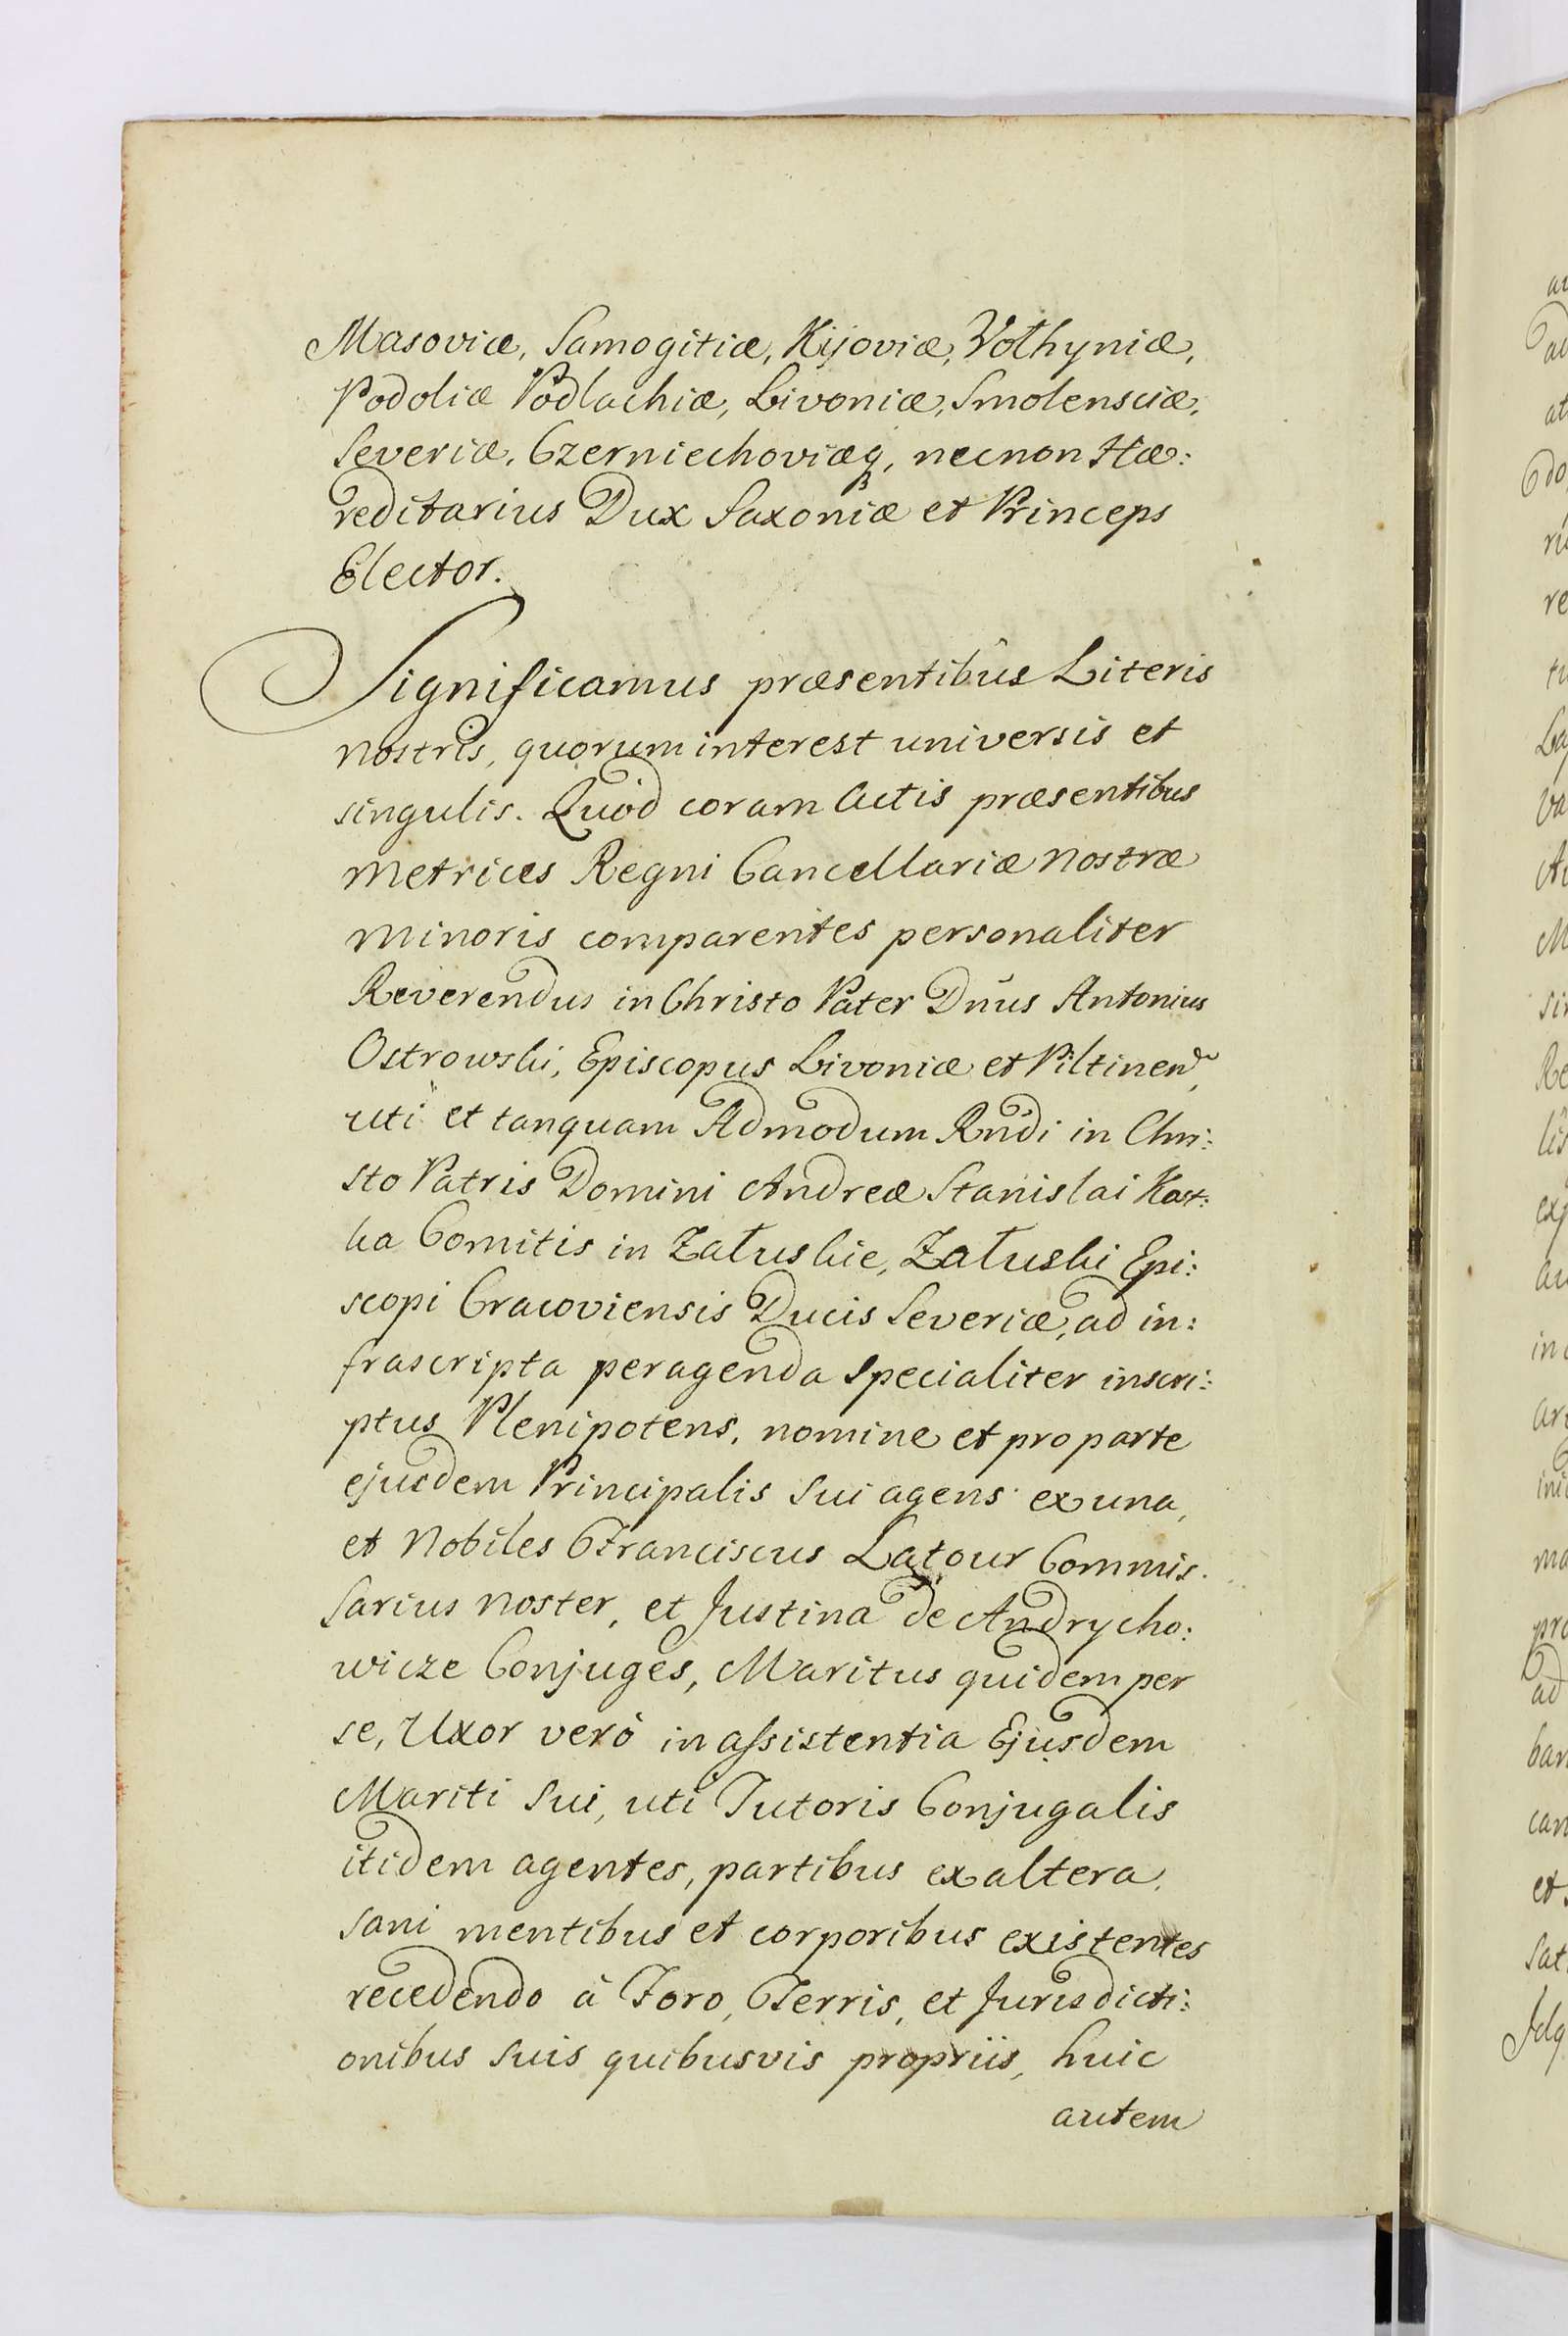 Masoviæ, Samogitiæ, Kijoviæ, Volhyniæ,
Podoliæ Podlachiæ, Livoniæ, Smolensciæ,
Severiæ, Czerniechoviæq, necnon Hæ:
reditarius Dux Saxoniæ et Princeps
Elector.
Significamus præsentibus Literis
nostris, quorum interest universis et
singulis. Quod coram Actis præsentibus
Metrices Regni Cancellariæ nostræ
minoris comparentes personaliter
Reverendus in Christo Pater Dnus Antonius
Ostrowski, Episcopus Livoniæ et Piltinen
uti et tanquam Admodum Rndi in Chri:
sto Patris Domini Andreæ Stanislai Kost:
ka Comitis in Załuskie, Załuski Epi:
scopi Cracoviensis Ducis Severiæ, ad in:
frascripta peragenda specialiter inscri:
ptus Plenipotens, nomine et pro parte
ejusdem Principalis sui agens ex una,
et Nobiles Franciscus Latour Commis.
sarius noster, et Justina de Andrycho:
wicze Conjuges, Maritus quidem per
se, Uxor verò in assistentia Ejusdem
Mariti sui, uti Tutoris Conjugalis
itidem agentes, partibus ex altera,
sani mentibus et corporibus existentes
recedendo à Foro, Terris, et Jurisdicti:
onibus suis quibusvis propriis, huic
autem